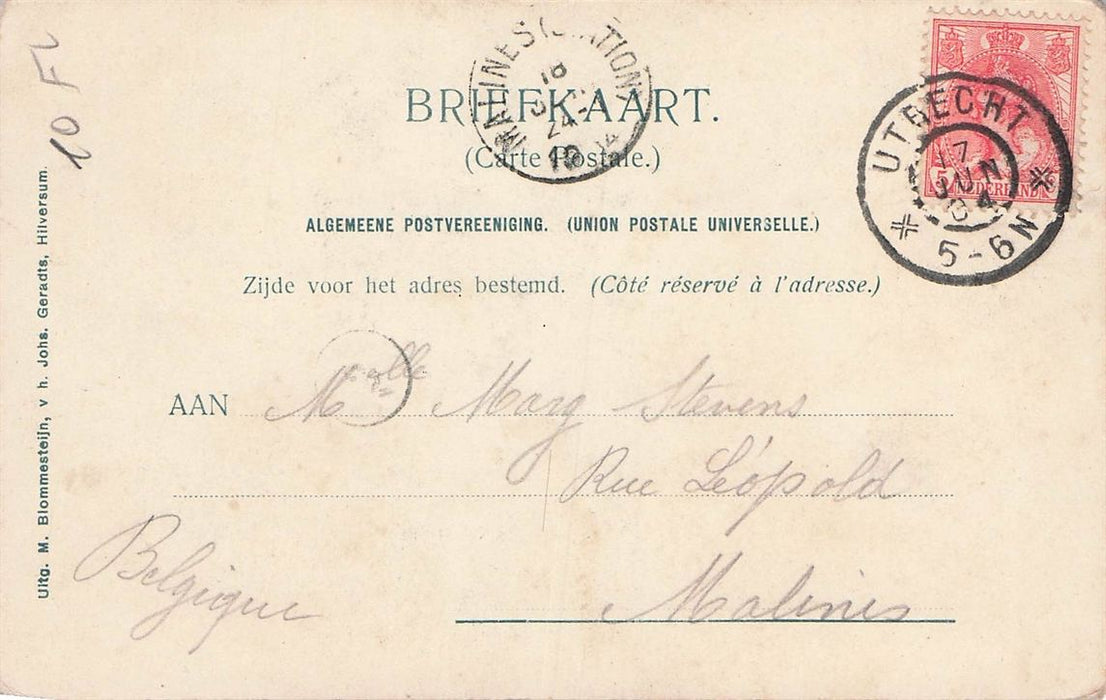 10 FL
MALINES (STATION)
18
24
10
BRIEFKAART.
(Carte Postale.)
UTRECHT
17
JUN
5-6N
5
NEDERLAND
ALGEMEENE POSTVEREENIGING. (UNION POSTALE UNIVERSELLE.)
Zijde voor het adres bestemd. (Côté réservé à l'adresse.)
AAN Melle Marg Stevens
Rue Léopold
Malines
Belgique
Uitg. M. Blommesteijn, v h. Johs. Geradts, Hilversum.